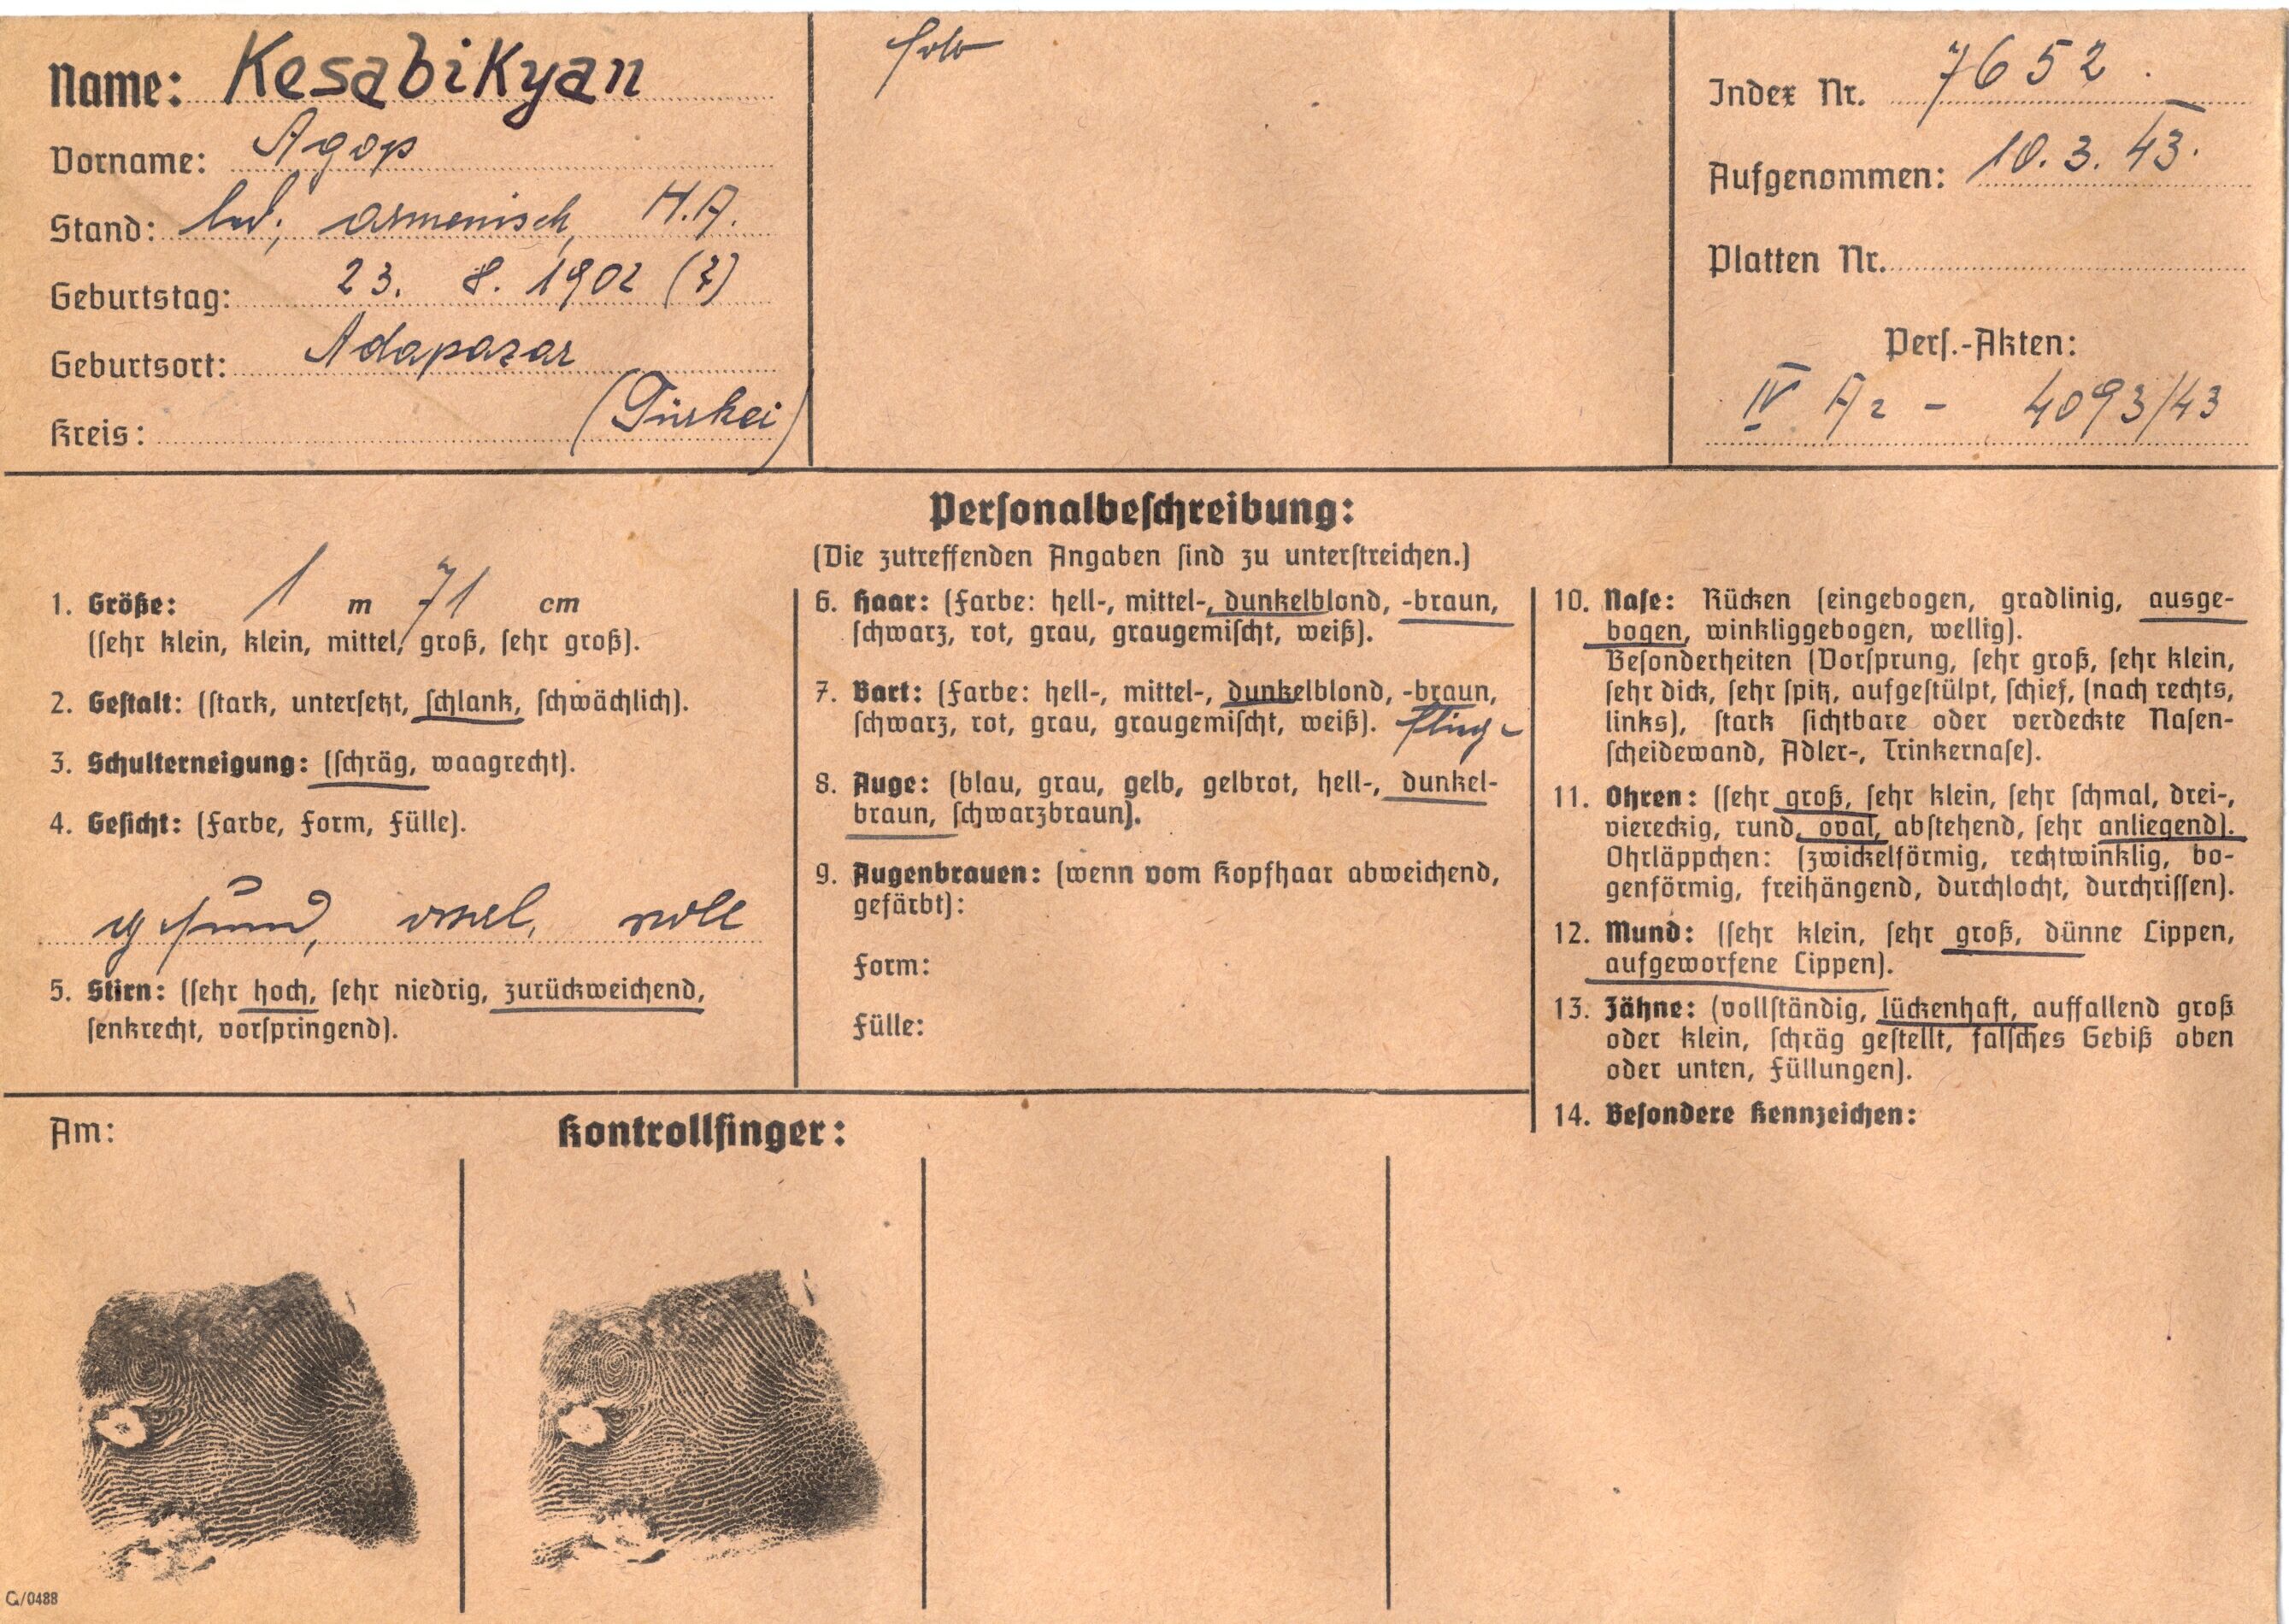 Name: Kesabikyan
Vorname: Agop
Stand: led; armenisch, H.A.
Geburtstag: 23. 8. 1902 (?)
Geburtsort: Adapazar
Kreis: (Türkei)
Index Nr. 7652.
Aufgenommen: 10. 3. 43.
Platten Nr.
Pers.-Akten:
IV A2 - 4093/43
Personalbeschreibung:
(Die zutreffenden Angaben sind zu unterstreichen.)
1. Größe: 1 m 71 cm
(sehr klein, klein, mittel, groß, sehr groß).
2. Gestalt: (stark, untersetzt, schlank, schwächlich).
3. Schulterneigung: (schräg, waagrecht).
4. Gesicht: (Farbe, Form, Fülle).
gesund, oval, voll
5. Stirn: (sehr hoch, sehr niedrig, zurückweichend,
senkrecht, vorspringend).
6. Haar: (Farbe: hell-, mittel-, dunkelblond, -braun,
schwarz, rot, grau, graugemischt, weiß).
7. Bart: (Farbe: hell-, mittel-, dunkelblond, -braun,
schwarz, rot, grau, graugemischt, weiß).
8. Auge: (blau, grau, gelb, gelbrot, hell-, dunkel-
braun, schwarzbraun).
9. Augenbrauen: (wenn vom Kopfhaar abweichend,
gefärbt):
Form:
Fülle:
10. Nase: Rücken (eingebogen, gradlinig, ausge-
bogen, winkliggebogen, wellig).
Besonderheiten (Vorsprung, sehr groß, sehr klein,
sehr dick, sehr spitz, aufgestülpt, schief, (nach rechts,
links), stark sichtbare oder verdeckte Nasen-
scheidewand, Adler-, Trinkernase).
11. Ohren: (sehr groß, sehr klein, sehr schmal, drei-,
viereckig, rund, oval, abstehend, sehr anliegend).
Ohrläppchen: (zwickelförmig, rechtwinklig, bo-
genförmig, freihängend, durchlocht, durchrissen).
12. Mund: (sehr klein, sehr groß, dünne Lippen,
aufgeworfene Lippen).
13. Zähne: (vollständig, lückenhaft, auffallend groß
oder klein, schräg gestellt, falsches Gebiß oben
oder unten, Füllungen).
14. Besondere Kennzeichen:
Am:
Kontrollfinger:
G/0488